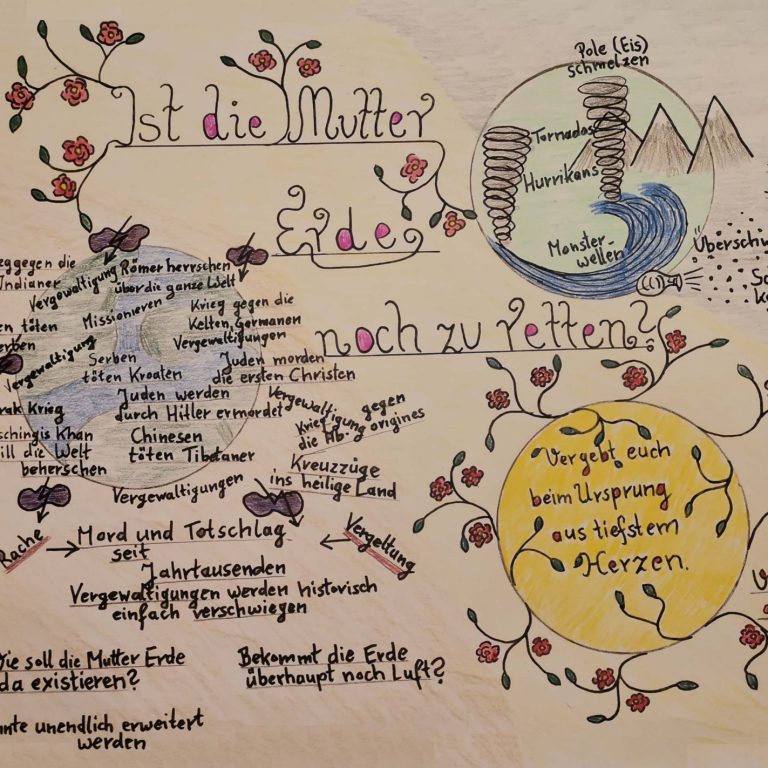 Ist die Mutter
Erde
noch zu retten?
Pole (Eis)
schmelzen
Tornados
Hurrikans
Monster-
wellen
Überschw
eggegen die
Indianer
Vergewaltigung
Römer herrschen
über die ganze Welt
Missionieren
Krieg gegen die
Kelten, Germanen
Vergewaltigungen
en töten
erben
Vergewaltigung
Serben
töten Kroaten
Juden morden
die ersten Christen
rak Krieg
Juden werden
durch Hitler ermordet
Vergewaltigung
Krieg gegen
die Ab-origines
schingis Khan
ill die Welt
beherschen
Chinesen
töten Tibetaner
Kreuzzüge
ins heilige Land
Vergewaltigungen
Rache
Mord und Totschlag
seit
Jahrtausenden
Vergeltung
Vergewaltigungen werden historisch
einfach verschwiegen
Vergebt euch
beim Ursprung
aus tiefstem
Herzen.
Wie soll die Mutter Erde
da existieren?
Bekommt die Erde
überhaupt noch Luft?
nnte unendlich erweitert
werden